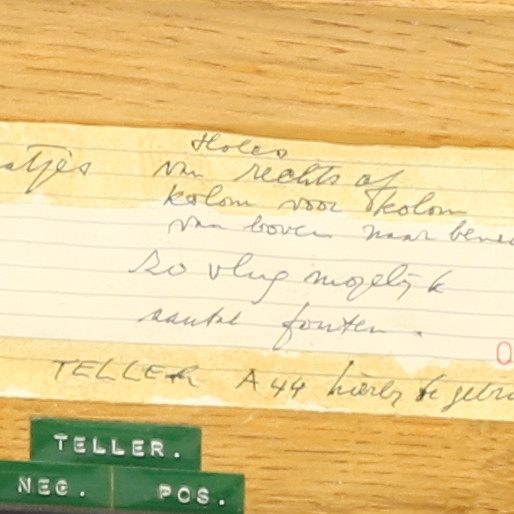 Holes
van rechts af
kolom voor kolom
van boven naar
zo vlug mogelijk
aantal fouten.
TELLER A 44 hierbij te
TELLER.
NEG. POS.